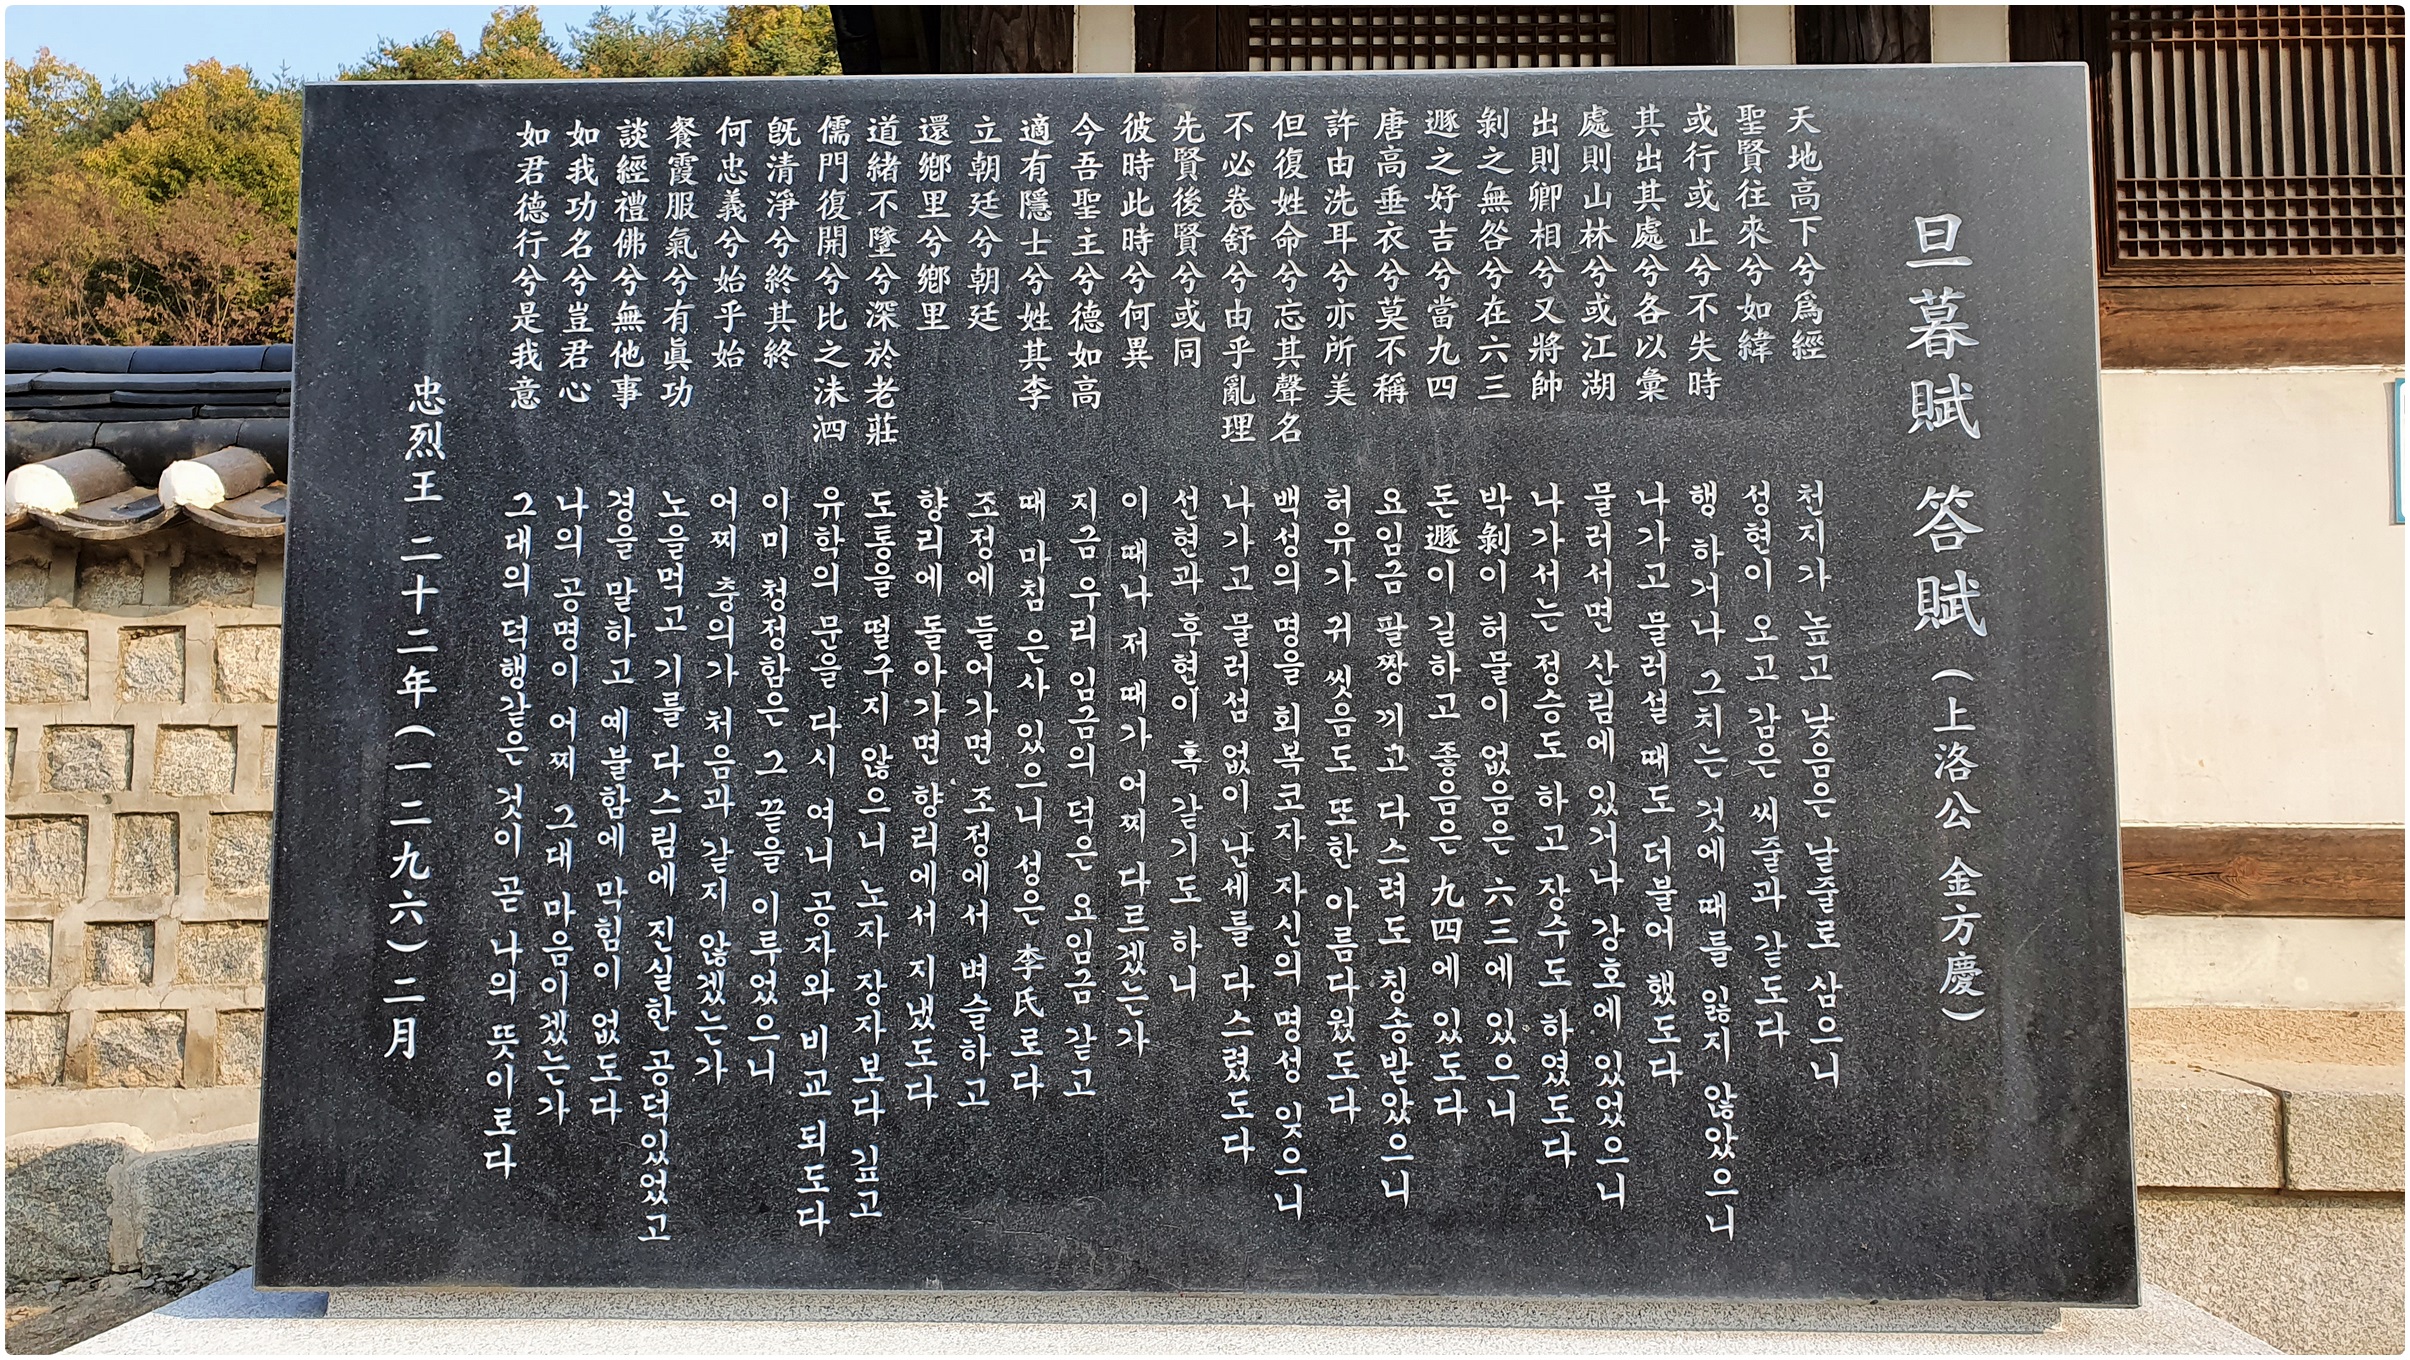 旦暮賦 答賦 (上洛公 金方慶)
天地高下兮爲經
聖賢往來兮如緯
或行或止兮不失時
其出其處兮各以彙
處則山林兮或江湖
出則卿相兮又將帥
剝之無咎兮在六三
遯之好吉兮當九四
唐高垂衣兮莫不稱
許由洗耳兮亦所美
但復姓命兮忘其聲名
不必卷舒兮由乎亂理
先賢後賢兮或同
彼時此時兮何異
今吾聖主兮德如高
適有隱士兮姓其李
立朝廷兮朝廷
還鄕里兮鄕里
道緖不墜兮深於老莊
儒門復開兮比之洙泗
旣清淨兮終其終
何忠義兮始乎始
餐霞服氣兮有眞功
談經禮佛兮無他事
如我功名兮豈君心
如君德行兮是我意
천지가 높고 낮음은 날줄로 삼으니
성현이 오고 감은 씨줄과 같도다
행 하거나 그치는 것에 때를 잃지 않았으니
나가고 물러설 때도 더불어 했도다
물러서면 산림에 있거나 강호에 있었으니
나가서는 정승도 하고 장수도 하였도다
박剝이 허물이 없음은 六三에 있으니
돈遯이 길하고 좋음은 九四에 있도다
요임금 팔짱 끼고 다스려도 칭송받았으니
허유가 귀 씻음도 또한 아름다웠도다
백성의 명을 회복코자 자신의 명성 잊으니
나가고 물러섬 없이 난세를 다스렸도다
선현과 후현이 혹 같기도 하니
이 때나 저 때가 어찌 다르겠는가
지금 우리 임금의 덕은 요임금 같고
때 마침 은사 있으니 성은 李氏로다
조정에 들어가면 조정에서 벼슬하고
향리에 돌아가면 향리에서 지냈도다
도통을 떨구지 않으니 노자 장자보다 깊고
유학의 문을 다시 여니 공자와 비교 되도다
이미 청정함은 그 끝을 이루었으니
어찌 충의가 처음과 같지 않겠는가
노을먹고 기를 다스림에 진실한 공덕있었고
경을 말하고 예불함에 막힘이 없도다
나의 공명이 어찌 그대 마음이겠는가
그대의 덕행같은 것이 곧 나의 뜻이로다
忠烈王 二十二年(一二九六)二月